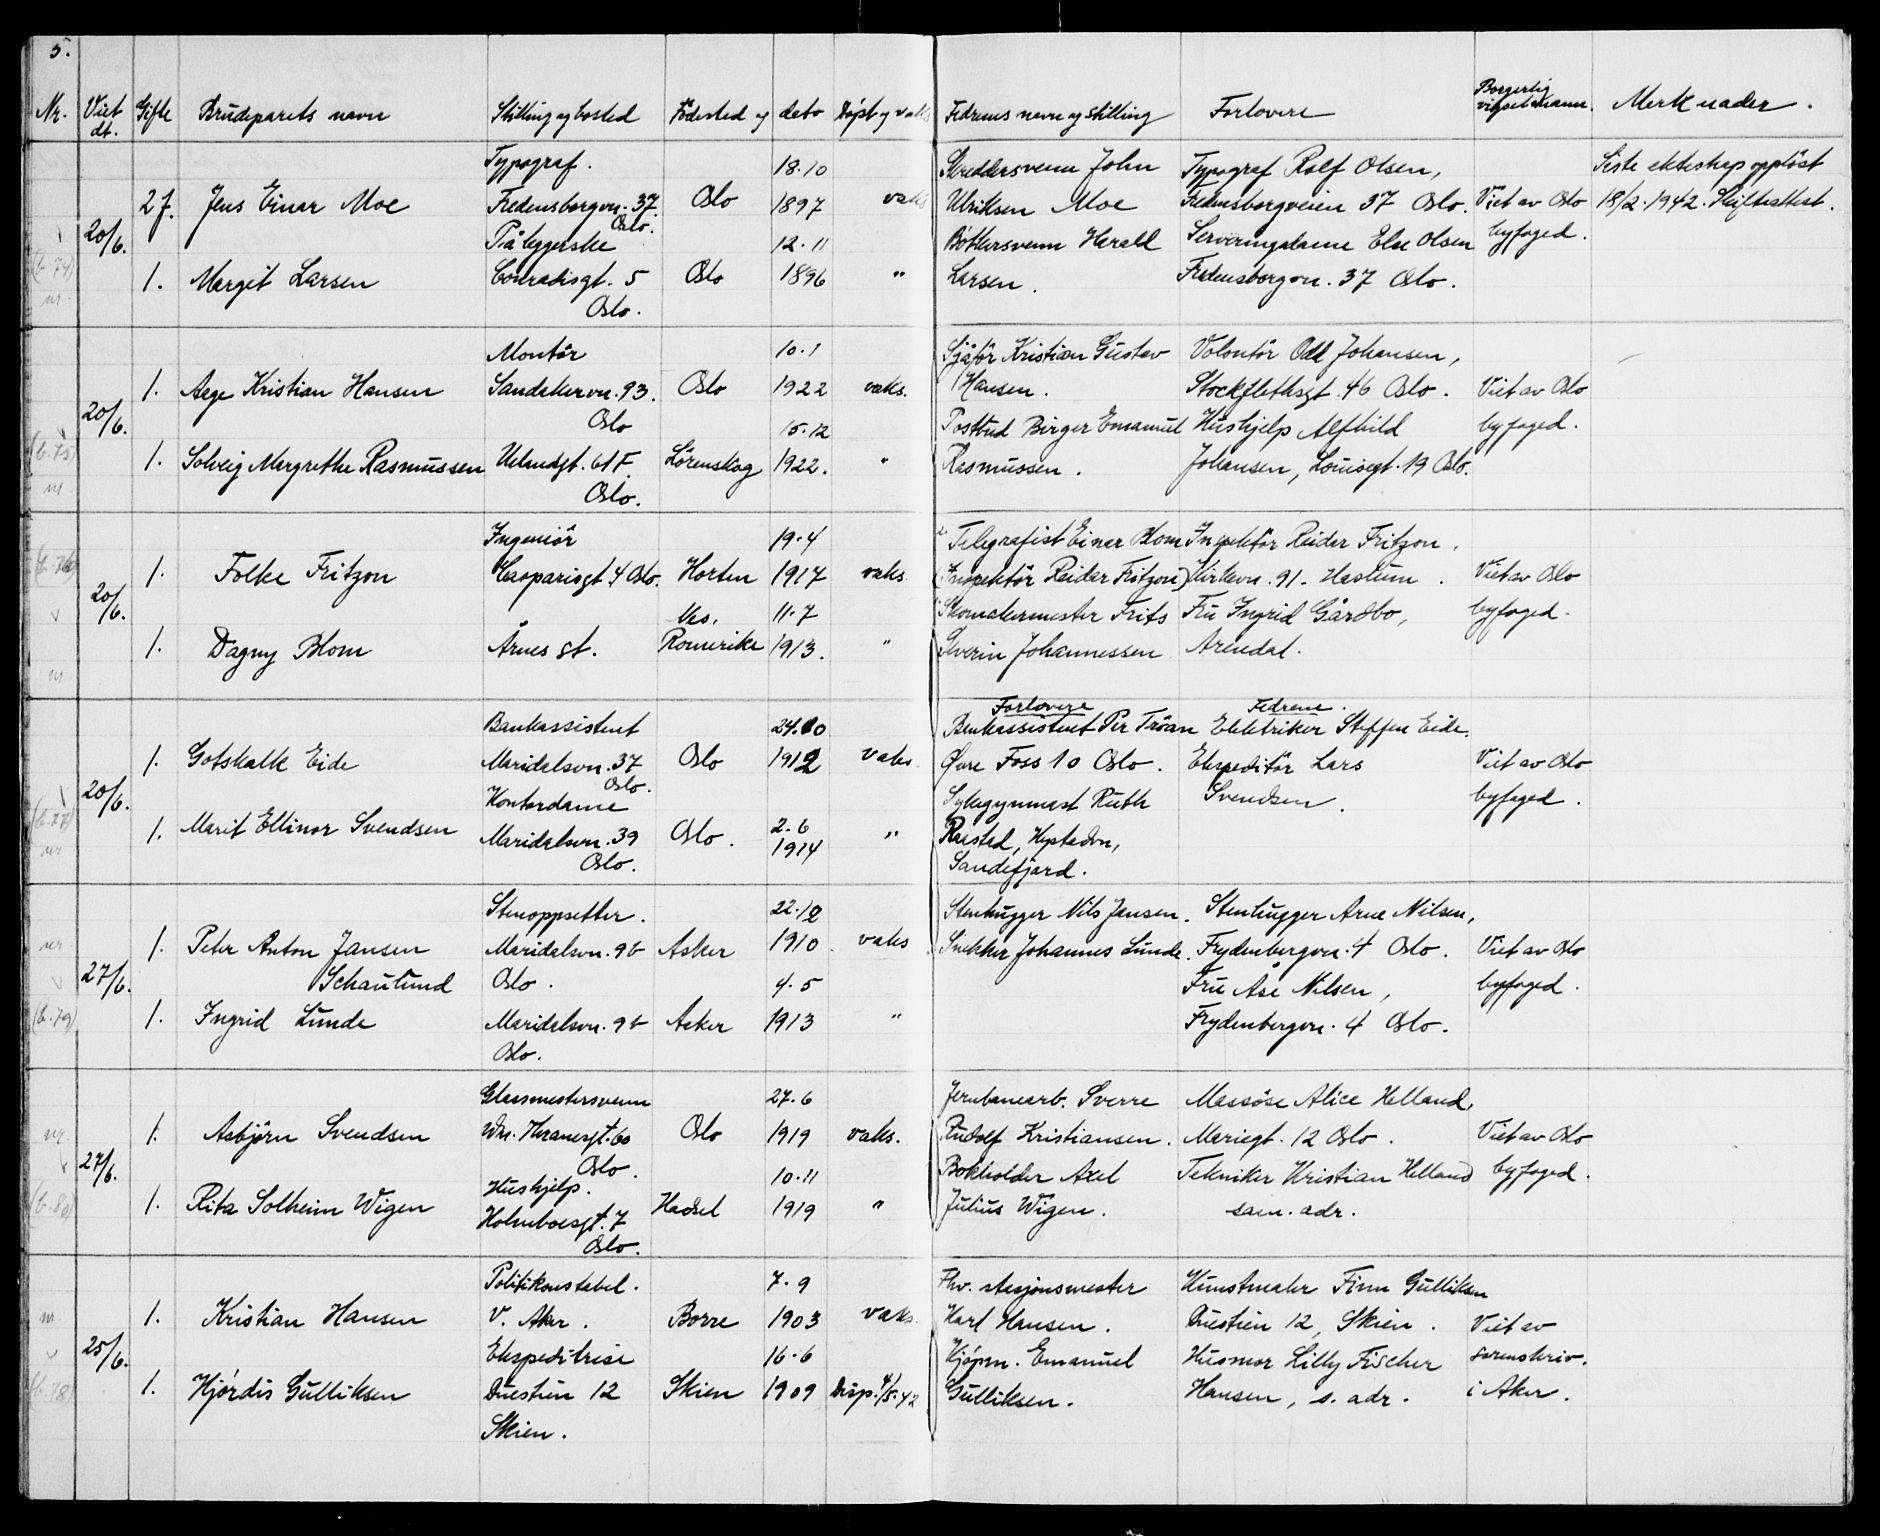 5.
Nr. Viet dt. Gifte Brudeparets navn Stilling og bosted Fødested og dato Døpt og vaks Fedrenes navn og stilling Forlovere Borgerlig vigselsmann. Merknader.
Typograf. 18.10 Skreddersvenn John Typograf Rolf Olsen, Siste ekteskap oppløst
2 f. Jens Einar Moe Fredensborgvn. 37 Oslo 1897 vaks Ulriksen Moe Fredensborgveien 37 Oslo. Viet av Oslo 18/2. 1942. Skifteattest.
20/6. Oslo.
Påleggerske 12.11 Bøtkersvenn Harald Serveringsdame Else Olsen byfoged.
(b.74) 1. Margit Larsen Conradisgt. 5 Oslo 1896 " Larsen. Fredensborgvn. 37 Oslo.
nr. Oslo.
Montör 10.1 Sjåför Kristian Gustav Volontör Odd Johansen,
1. Aage Kristian Hansen Sandakervn. 93. Oslo 1922 vaks. Hansen. Stockflethsgt. 46 Oslo. Viet av Oslo
20/6. Oslo 15.12 Postbud Birger Emanuel Hushjelp Alfhild byfoged.
(b.75) 1. Solveig Margrethe Rasmussen Uelandsgt. 61 F. Lörenskog 1922. " Rasmussen. Johansen, Louisegt. 19 Oslo.
nr Oslo.
Ingeniör 19.4 2 Telegrafist Einar Blom Inspektör Reidar Fritzon.
(b.76) 1. Folke Fritzon Casparisgt. 4 Oslo. Horten 1917 vaks. (Inspektör Reidar Fritzon) Kirkevn. 91. Haslum. Viet av Oslo
20/6. Nes, 11.7 Skomakermester Frits Fru Ingrid Gårdbo, byfoged.
1. Dagny Blom Årnes st. Romerike 1913. " Severin Johannessen Arendal.
nr
Forlovere Fedrene.
Bankassistent 24.10 Bankassistent Per Tröan Elektriker Steffen Eide.
1. Gotskalk Eide Maridalsvn. 37 Oslo 1912 vaks. Øvre Foss 10 Oslo. Ekspeditör Lars Viet av Oslo
20/6. Oslo.
Kontordame Sykegymnast Ruth Svendsen. byfoged.
(b.77) 1. Marit Ellinor Svendsen Maridalsvn. 39 Oslo. 2.6 1914 " Raastad,
nr Oslo. Sandefjord.
Stenoppsetter. 22.12 Stenhugger Nils Jansen. Stenhugger Arne Nilsen,
nr 1. Peter Anton Jansen Maridalsvn. 9b Asker 1910. vaks Snekker Johannes Lunde. Frydenbergvn. 4 Oslo. Viet av Oslo
27/6. Schaulund Oslo. 4.5 Fru Åse Nilsen, byfoged.
(b.79) 1. Ingrid Lunde Maridalsvn. 9b Asker 1913 " Frydenbergvn. 4 Oslo.
Oslo.
Glassmestersvenn 27.6 Jernbanearb. Sverre Massöse Alice Helland,
nr. 1. Asbjörn Svendsen Wm. Thranesgt. 60 Oslo 1919 vaks. Rudolf Kristiansen. Mariegt. 12 Oslo. Viet av Oslo
27/6. Oslo. 10.11 Bokholder Axel Tekniker Kristian Helland byfoged.
Hushjelp.
(b.80) 1. Rita Solheim Wigen Holmboesgt. 7 Hadsel 1919 " Julius Wigen. sam. adr.
Oslo.
Politikonstabel. 7.9 Fhv. stasjonsmester Kunstmaler Finn Gulliksen
nr. 1. Kristian Hansen V. Aker. Borre 1903 vaks. Karl Hansen. Duestien 12, Skien. Viet av
25/6. Ekspeditrise 16.6 Kjøpm. Emanuel Husmor Lilly Fischer sorenskriv.
(b.78) 1. Hjördis Gulliksen Duestien 12 Skien 1909 Disp. 4/5.42 Gulliksen. Hansen, s. adr. i Aker.
Skien.